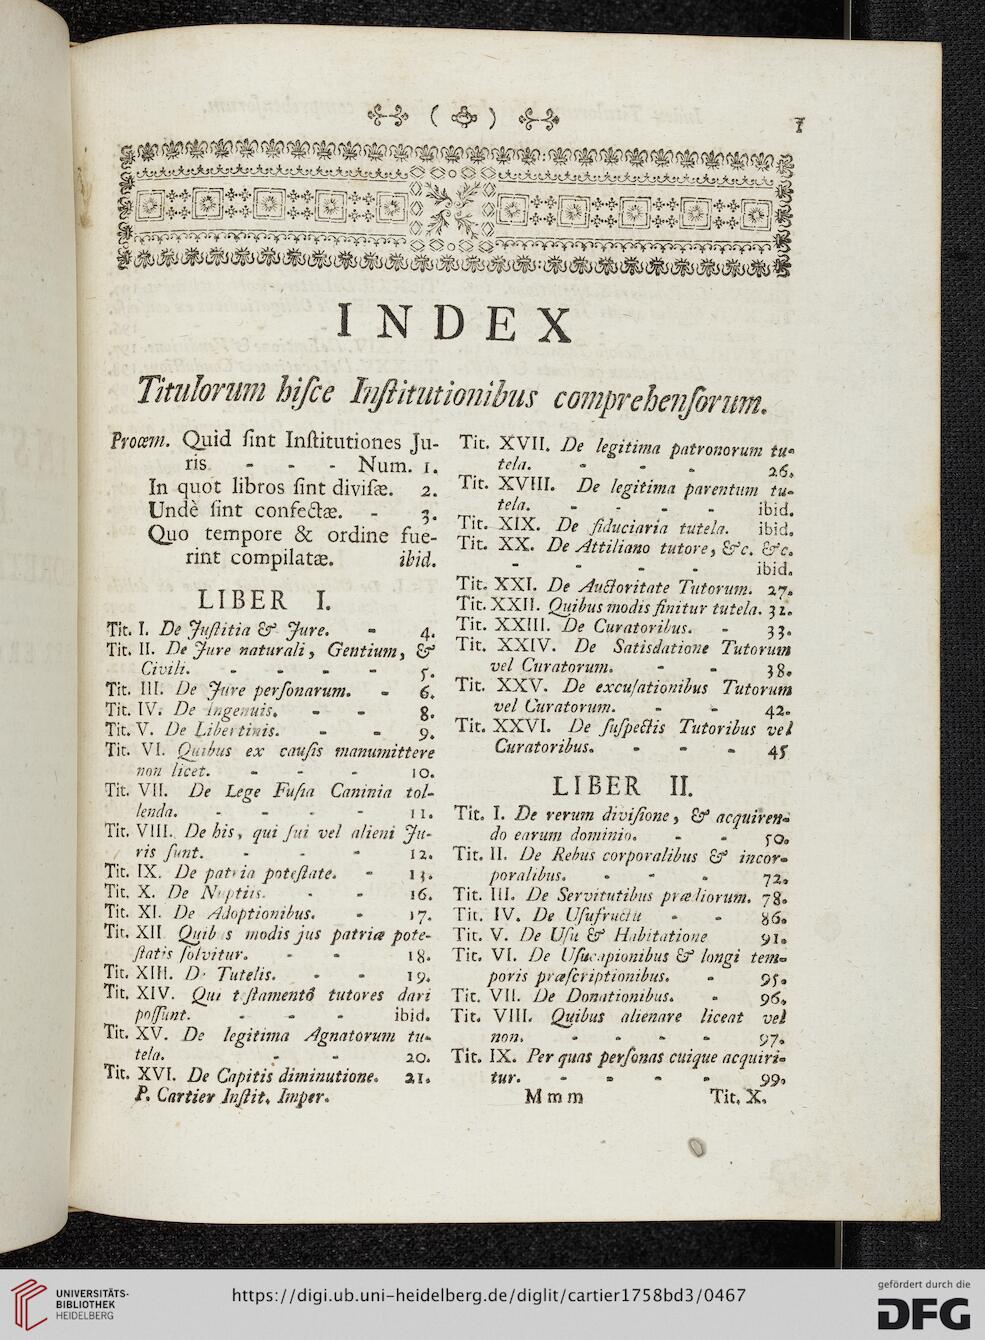 7
INDEX
Titulorum hiſce Inſtitutionibus comprehenſorum.
Proœm. Quid ſint Inſtitutiones Ju-
ris - - - Num. 1.
In quot libros ſint diviſæ. 2.
Undè ſint confectæ. - 3.
Quo tempore & ordine fue-
rint compilatæ. ibid.
LIBER I.
Tit. I. De Juſtitia & Jure. - 4.
Tit. II. De Jure naturali, Gentium, &
Civili. - - - - 5.
Tit. III. De Jure perſonarum. - 6.
Tit. IV. De Ingenuis. - - 8.
Tit. V. De Libertinis. - - 9.
Tit. VI. Quibus ex cauſis manumittere
non licet. - - - 10.
Tit. VII. De Lege Fuſia Caninia tol-
lenda. - - - - 11.
Tit. VIII. De his, qui ſui vel alieni Ju-
ris ſunt. - - - 12.
Tit. IX. De patria poteſtate. - 13.
Tit. X. De Nuptiis. - - 16.
Tit. XI. De Adoptionibus. - 17.
Tit. XII Quibus modis jus patriæ pote-
ſtatis ſolvitur. - - 18.
Tit. XIII. De Tutelis. - - 19.
Tit. XIV. Qui teſtamentô tutores dari
poſſunt. - - - ibid.
Tit. XV. De legitima Agnatorum tu-
tela. - - 20.
Tit. XVI. De Capitis diminutione. 21.
P. Cartier Inſtit. Imper.
Tit. XVII. De legitima patronorum tu-
tela. - - - 26.
Tit. XVIII. De legitima parentum tu-
tela. - - - - ibid.
Tit. XIX. De fiduciaria tutela. ibid.
Tit. XX. De Attiliano tutore, &c. &c.
- - - - ibid.
Tit. XXI. De Auctoritate Tutorum. 27.
Tit. XXII. Quibus modis finitur tutela. 31.
Tit. XXIII. De Curatoribus. - 33.
Tit. XXIV. De Satisdatione Tutorum
vel Curatorum. - - 38.
Tit. XXV. De excuſationibus Tutorum
vel Curatorum. - - 42.
Tit. XXVI. De ſuſpectis Tutoribus vel
Curatoribus. - - - 45
LIBER II.
Tit. I. De rerum diviſione, & acquiren-
do earum dominio. - - 50.
Tit. II. De Rebus corporalibus & incor-
poralibus. - - - 72.
Tit. III. De Servitutibus prædiorum. 78.
Tit. IV. De Uſufructu - - 86.
Tit. V. De Uſu & Habitatione 91.
Tit. VI. De Uſucapionibus & longi tem-
poris præſcriptionibus. - 95.
Tit. VII. De Donationibus. - 96.
Tit. VIII. Quibus alienare liceat vel
non. - - - - 97.
Tit. IX. Per quas perſonas cuique acquiri-
tur. - - - - 99.
Mmm Tit. X.
UNIVERSITÄTS-
BIBLIOTHEK
HEIDELBERG
https://digi.ub.uni-heidelberg.de/diglit/cartier1758bd3/0467
gefördert durch die
DFG